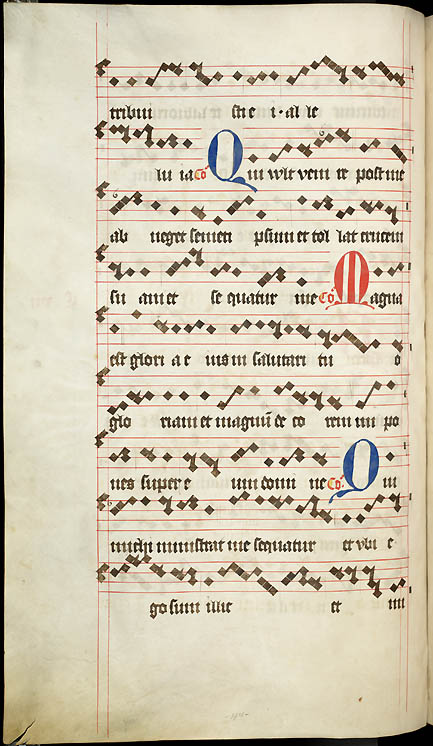 tribui sti e i · al le
lu ia Co Qui wlt veni re post me
ab neget semet ipsum et tol lat crucem
su am et se quatur me Co Magna
est glori a e ius in salutari tu o
glo riam et magnū de co rem im po
nes super e um domi ne Co Qui
michi ministrat me sequatur et vbi e
go sum illic et mi